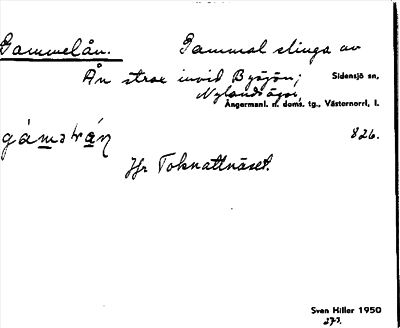 Gammelån. Gammal slinga av
Ån strax invid Bysjön; Sidensjö sn,
Nylandsägor.
Ångermanl. n. doms. tg., Västernorrl. l.
826.
Jfr Toknattnäset.
Sven Hiller 1950
273.